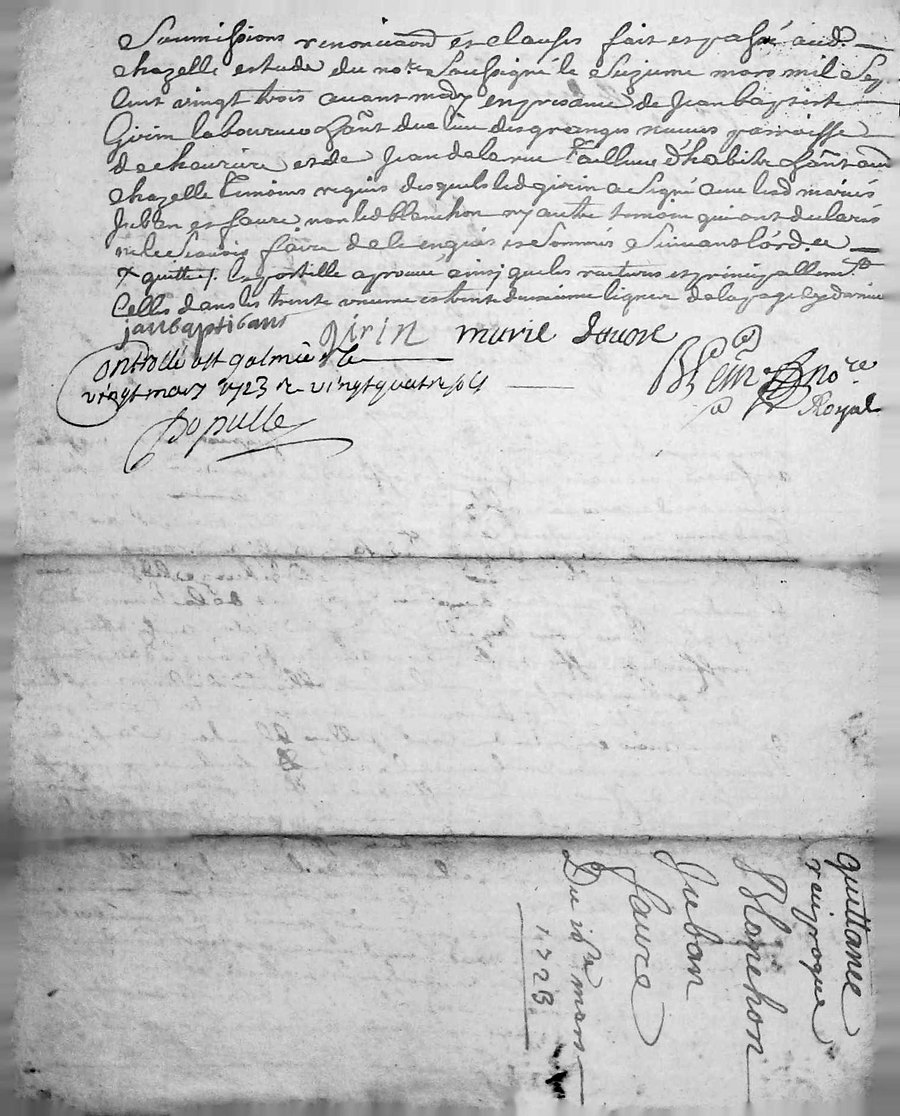 Soumissions renonciaons et clauses fait et passé aud.
chazelle estude du no.re soussigné le seizieme mars mil sep
cent vingt trois avant midy en presance de Jean baptiste
Girin laboureur hãnt du lieu des granges neuves parroisse
de chevrière et de Jean delarue tailleur d'habits hãnt aud
chazelle temoins requis desquels led girin a signé avec lesd mariés
Juban et faure non led blanchon ny autre temoin qui ont declarés
ne le scavoir faire de le enquis et sommés suivant lord.ce
x quitte /. lapostille aprouvé ainsy que les ratures et principallem.t
celles dans les trente uneme et trente deuxieme lignes de la page cy derniere
jan baptiste Girin marie favre
Controllé a st galmier le
vingt mars 1723 R vingt quatre sols
Blein no.re
Royal
quittance
reciproque
Blanchon
Juban
faure
Du 16e mars
1723